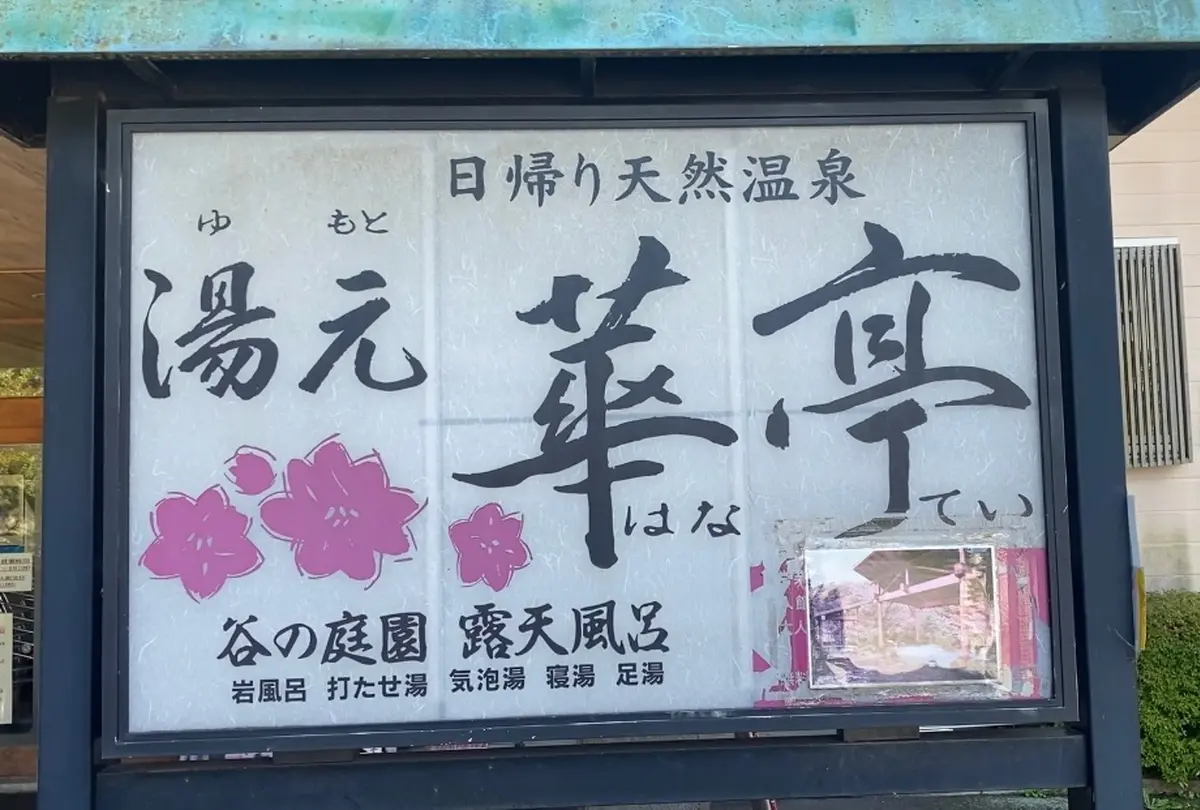 日帰り天然温泉
ゆ もと
湯元 華亭
はな てい
谷の庭園 露天風呂
岩風呂 打たせ湯 気泡湯 寝湯 足湯